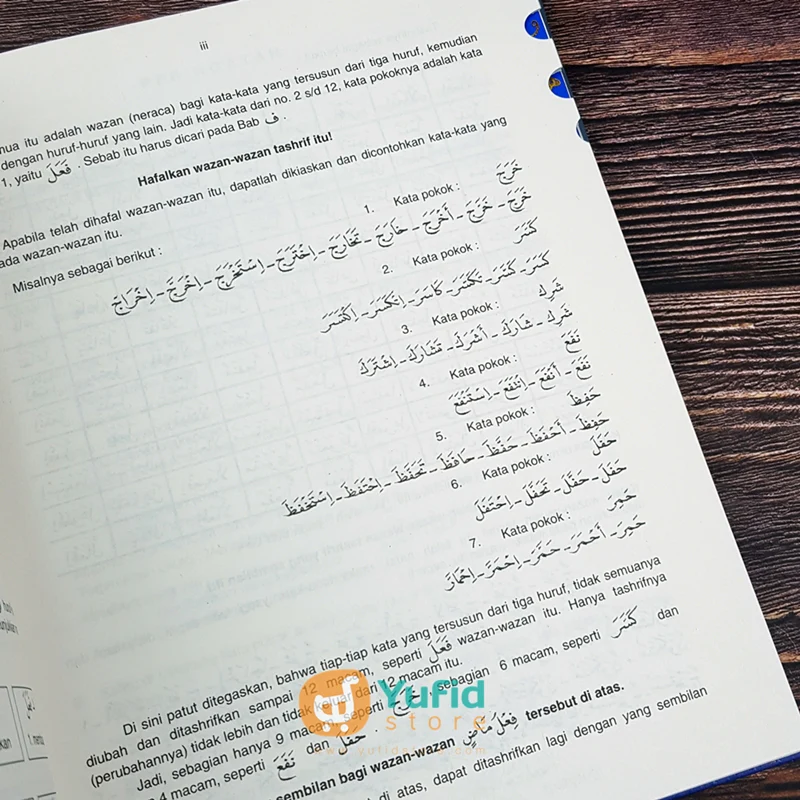 iii
nua itu adalah wazan (neraca) bagi kata-kata yang tersusun dari tiga huruf, kemudian
dengan huruf-huruf yang lain. Jadi kata-kata dari no. 2 s/d 12, kata pokoknya adalah kata
1, yaitu فَعَلَ . Sebab itu harus dicari pada Bab ف .
Hafalkan wazan-wazan tashrif itu!
Apabila telah dihafal wazan-wazan itu, dapatlah dikiaskan dan dicontohkan kata-kata yang
ada wazan-wazan itu.
Misalnya sebagai berikut :
1. Kata pokok : خَرَجَ
خَرَجَ - خَرَّجَ - أَخْرَجَ - خَارَجَ - تَخَارَجَ - اِخْتَرَجَ - اِسْتَخْرَجَ - اِخْرَجَّ - اِخْرَاجَّ
2. Kata pokok : كَسَرَ
كَسَرَ - كَسَّرَ - تَكَسَّرَ - كَاسَرَ - اِنْكَسَرَ - اِكْتَسَرَ
3. Kata pokok : شَرِكَ
شَرِكَ - شَارَكَ - أَشْرَكَ - تَشَارَكَ - اِشْتَرَكَ
4. Kata pokok : نَفَعَ
نَفَعَ - أَنْفَعَ - اِنْتَفَعَ - اِسْتَنْفَعَ
5. Kata pokok : حَفِظَ
حَفِظَ - أَحْفَظَ - حَفَّظَ - حَافَظَ - تَحَفَّظَ - اِحْتَفَظَ - اِسْتَحْفَظَ
6. Kata pokok : حَفَلَ
حَفَلَ - حَفَّلَ - تَحَفَّلَ - اِحْتَفَلَ
7. Kata pokok : حَمِرَ
حَمِرَ - أَحْمَرَ - حَمَّرَ - اِحْمَرَّ - اِحْمَارَّ
Di sini patut ditegaskan, bahwa tiap-tiap kata yang tersusun dari tiga huruf, tidak semuanya
diubah dan ditashrifkan sampai 12 macam, seperti فَعَلَ wazan-wazan itu. Hanya tashrifnya
(perubahannya) tidak lebih dan tidak keluar dari 12 macam itu.
Jadi, sebagian hanya 9 macam, seperti خَرَجَ , sebagian 6 macam, seperti كَسَرَ dan
4 macam, seperti نَفَعَ dan حَفَلَ .
sembilan bagi wazan-wazan فِعْلُ مَاضٍ tersebut di atas.
di atas, dapat ditashrifkan lagi dengan yang sembilan
Yufid
store